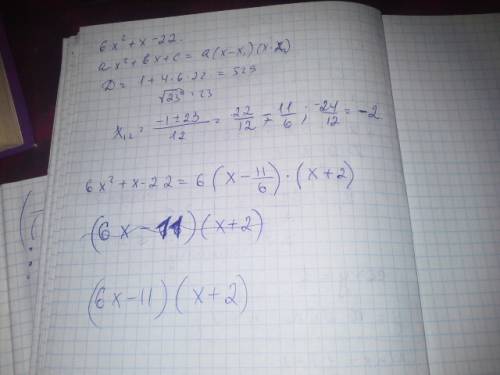 6x² + x - 22.
ax² + bx + c = a(x - x₁)(x - x₂)
D = 1 + 4 · 6 · 22 = 529
√23² = 23
x₁,₂ = (-1 ± 23)/12 = 22/12 = 11/6 ; -24/12 = -2
6x² + x - 22 = 6(x - 11/6) · (x + 2)
(6x - 11)(x + 2)
(6x - 11)(x + 2)